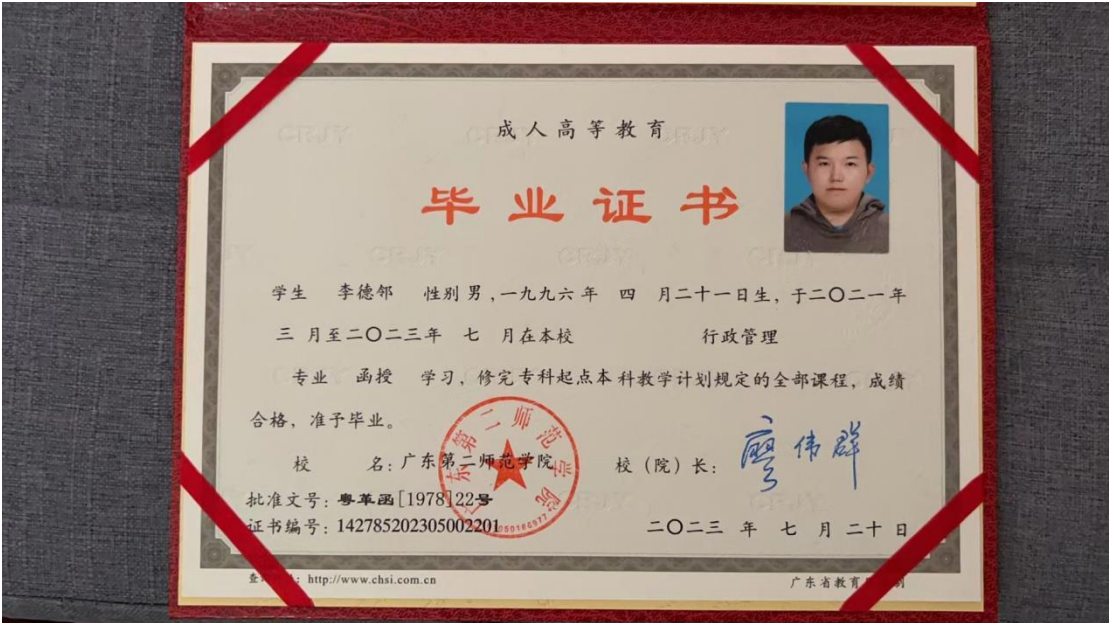 成人高等教育
毕业证书
学生 李德邻 性别 男，一九九六年 四 月二十一日生，于二〇二一年
三 月至二〇二三年 七 月在本校 行政管理
专业 函授 学习，修完专科起点本科教学计划规定的全部课程，成绩
合格，准予毕业。
校 名：广东第二师范学院 校（院）长：廖伟群
广东第二师范学院
批准文号：粤革函[1978]22号
证书编号：142785202305002201 二〇二三 年 七 月 二十 日
查 ：http://www.chsi.com.cn 广东省教育